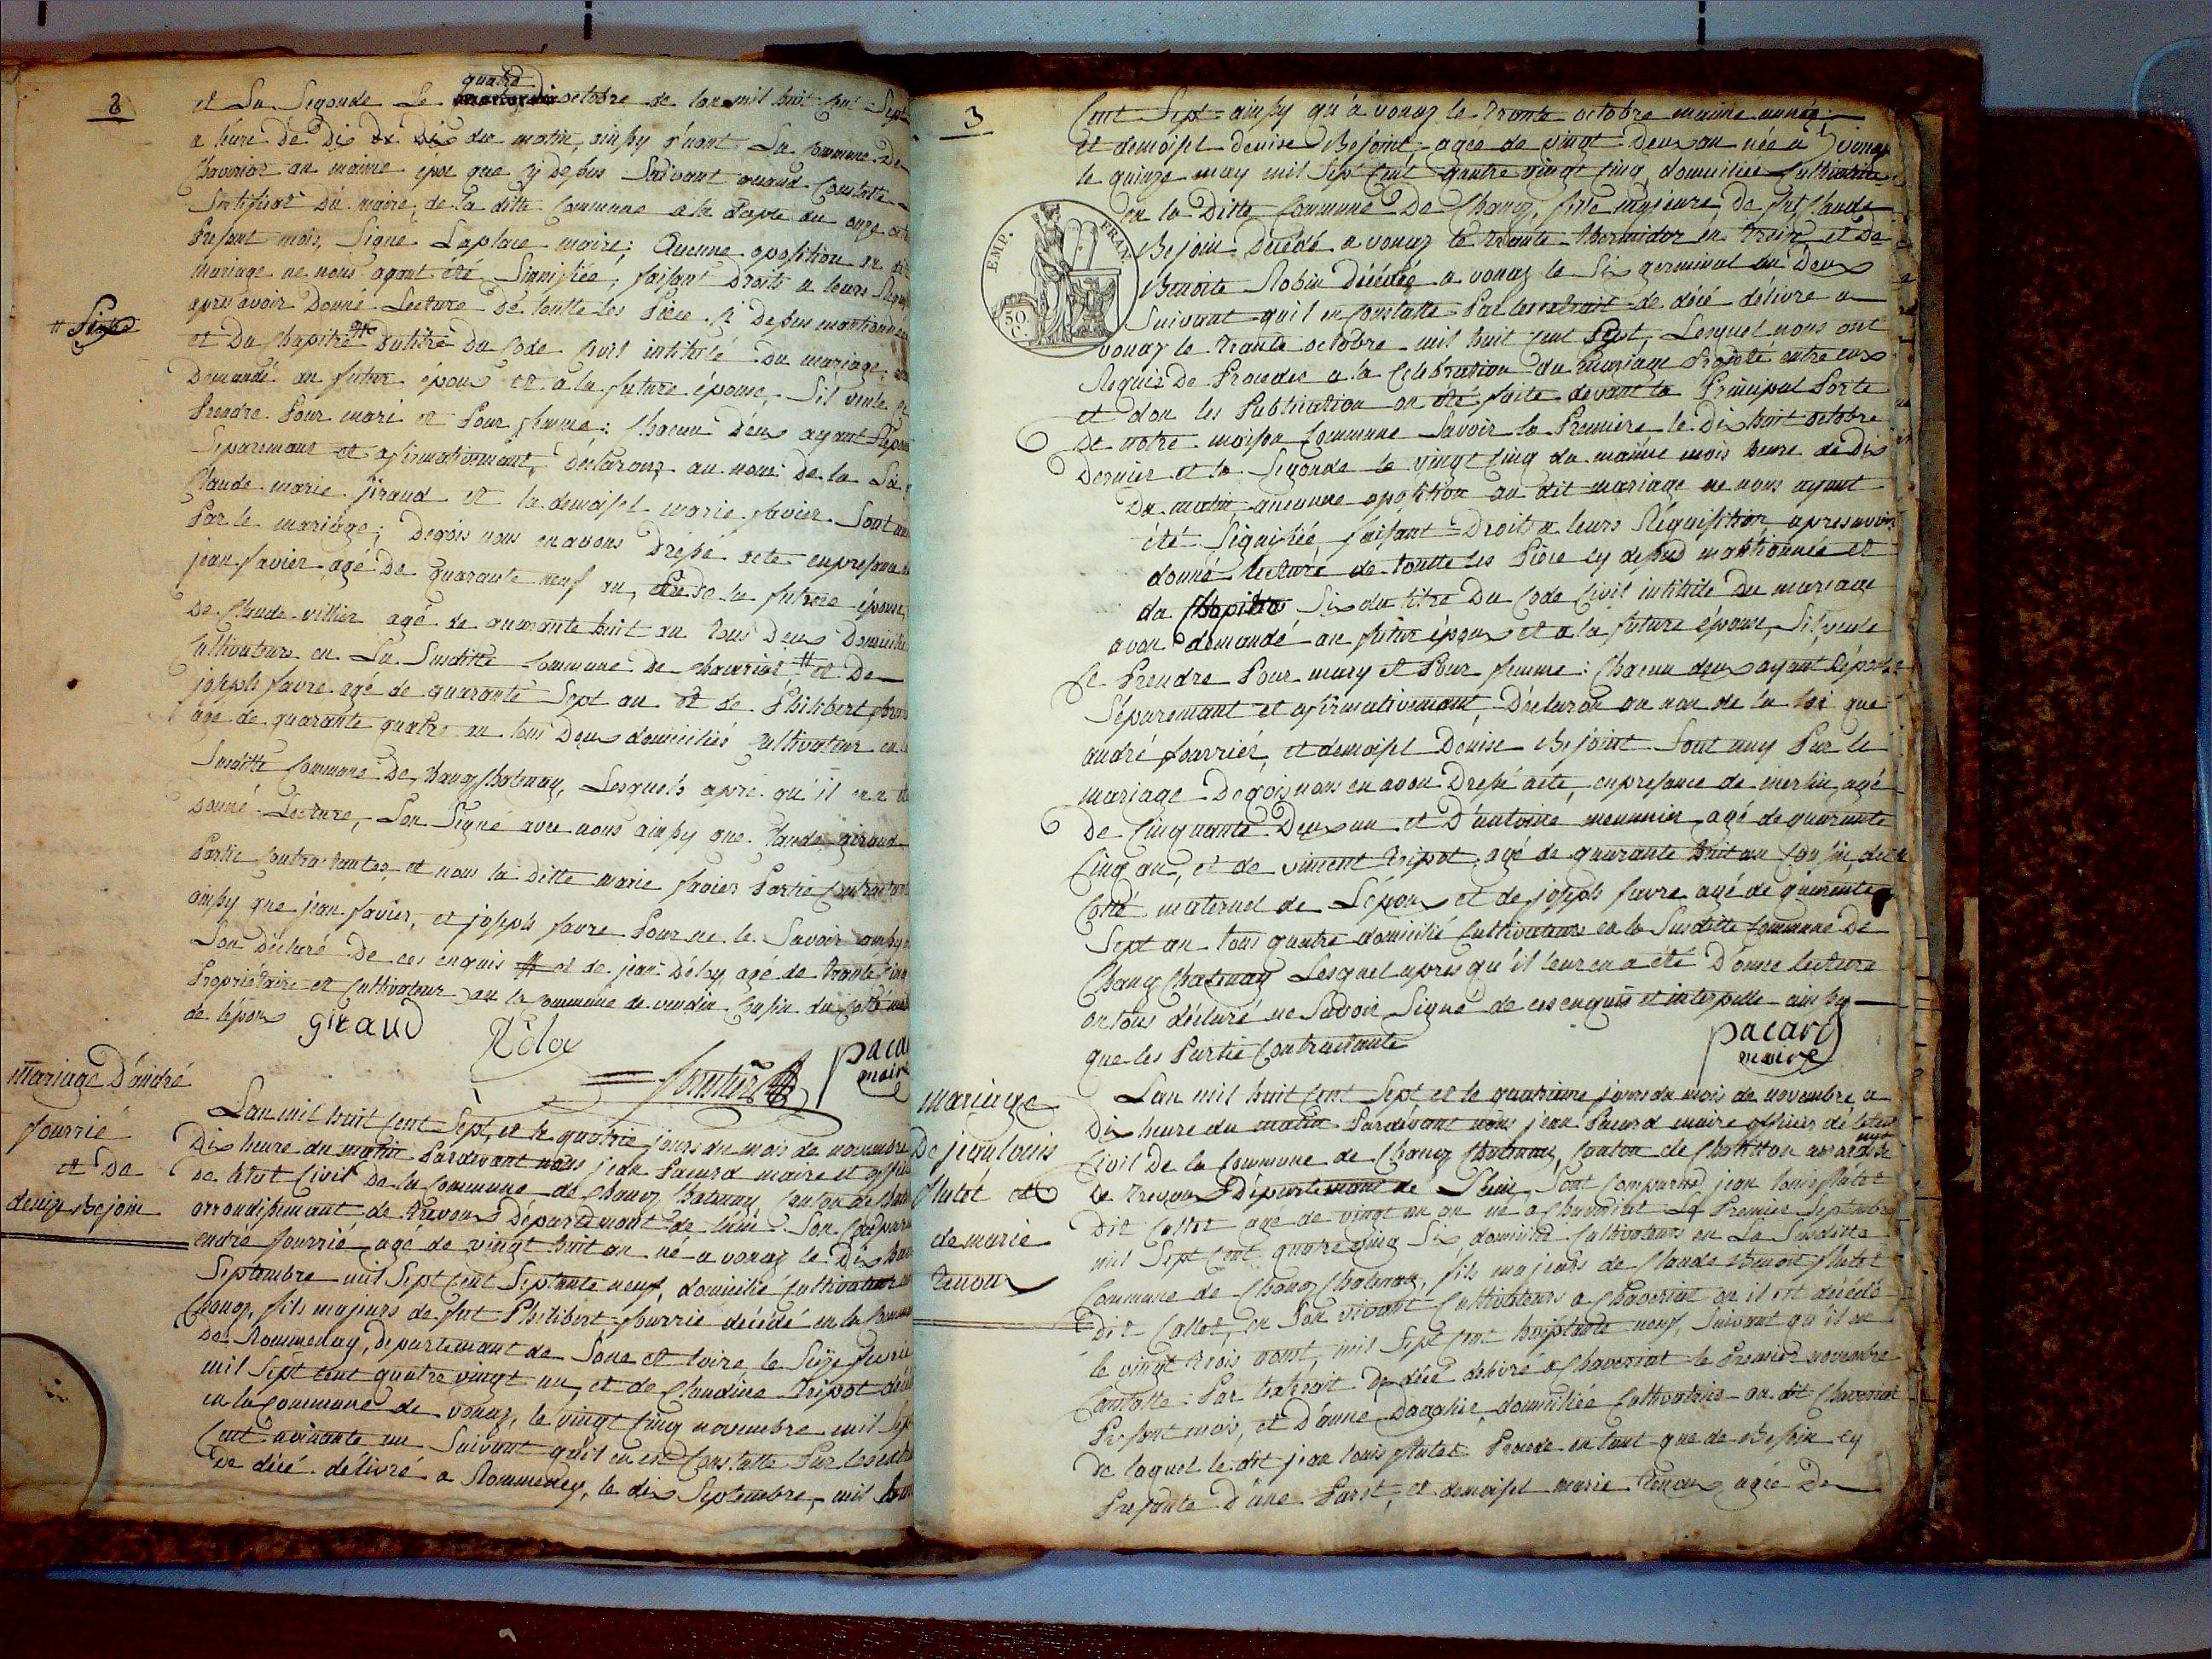 2
et La Segonde Le quatre octobre de lan mil huit cent Sept
a heure de Dix du matin, ainsy q'uant La Commune De
Chaveriat au maime épox que cy desus Suivant quand Constatte
Sertificat Du maire, de la ditte Commune a la date du onze
Present mois, Signé Laplace maire; Aucune oposition au dit
mariage ne nous ayant été Signifiée, faisant Droits a leurs
apres avoir Donné Lecture De toutte Les Pièce si desus mantionnée
# Six
et Du Chapitre # Dutitre Du Code Civil intitulé Du mariage,
Demandé au futur époux et a la future épouse, Sil veule
Prendre Pour mari et Pour famme: Chacun D'eux ayant Répon
Séparemant et afirmativemant, Déclarons au nom De la Loi
Claude marie jiraud et la demoisel marie favier Sont unis
Par le mariage; Dequois nous en avons Drésé acte en presence
jean favier, agé De quarante neuf an, de la future épouse,
De Claude villier agé de quarante huit an tous Deux Domicilié
Cultivateurs en La Susditte Commune De Chaveriat # et De
joseph favre agé de quarante Sept an et de Philibert
agé de quarante quatre an tous Deux domiciliés Cultivateur en la
Susditte Commune De Chanoz Chatenay, Lesquels apré qu'il en a été
donné Lecture, Son Signé avec nous ainsy que Claude giraud
Partie Contractantes, et nous la ditte marie favier Partie Contractante
ainsy que jean favier, et joseph favre Pour ne le Savoir ainsy
Son Déclaré De ces enquis # et de jean Déloy agé de trante cinq
Propriétaire et Cultivateur en la Commune de vandin Cousin du Cotté
de l'époux giraud
Déloy
pacard
maire
mariage D'andré
fourrié
et De
denize Bejoin
Lan mil huit Cent Sept, et le quatrie jours du mois de novembre
Dix heure du matin Pardevant nous jean Pacard maire et officier
De l'état Civil De la Commune de Chanoz Chatenay, Canton de
arrondisemant de trévoux Départemant de l'ain. Son Comparu
andré fourrié agé de vingt huit an né a vonaz le Dix
Septembre mil Sept Cent Septante neuf, domicilié Cultivateur
Chanoz, fils majeurs de fut Philibert fourrié décédé en la Commune
De Rommenay, Départemant de Sone et loire, le Seize
mil Sept cent quatre vingt un, et de Claudine tripot
en la Commune de vonaz, le vingt Cinq novembre mil Sept
Cent Suivant qu'il en est Constatte Par les
De décé délivré a Rommeney, le dix Septembre, mil huit
3
Cent Sept ainsy qu'à vonaz le trante octobre maime année
et demoisel denise Bejoint, agée de vingt Deux an née a vonaz
le quinze may mil Sept Cent quatre vingt Cinq, domiciliée Cultivatrice
en la Ditte Commune De Chanoz, fille majeure De fut Claude
Bejoin Décédé a vonaz le trante thermidor en treize et De
Benoite Robin Décédée a vonaz le Six germinal an Deux
Suivant qu'il en Constatte Par les extrait de décé délivré a
vonaz le trante octobre mil huit cent Sept, Lesquel nous ont
Requis De Procedee a la Célébration du mariage Projeté entre eux
et don les Publication on été faite devant la Principal Porte
De notre maison Commune Savoir la Premiere le Dix huit octobre
Dernier et la Segonde le vingt Cinq du maime mois heure de Dix
Du matin, aucunne oposition au dit mariage ne nous ayant
été Signifiée, faisant Droits a leurs Réquisition, apres avoir
donné lecture de toutte les Pièce cy desus mantionnée et
du Chapitre Six du titre Du Code Civil intitulé Du mariage
avon demandé au futur époux et a la future épouse, Sil veule
Se Prendre Pour mary et Pour femme: Chacun deux ayant Répondu
Séparemant et afirmativemant, Déclaron au non de la loi que
andré fourrier, et demoisel Denise Bejoint Sont uny Par le
mariage Dequois nous en avon Dresé acte, en presence de merlin, agé
De Cinquante Deux an et D'antoine meunnier agé de quarante
Cinq an, et de vincent tripot agé de quarante huit an Cousin, du
Cotté maternel de L'époux et de joseph favre agé de quarente
Sept an tous quatre domicilié Cultivateurs en la Susditte Commune De
Chanoz Chatenay Lesquel apres qu'il leur en a été D'onné lecture
on tous déclaré ne Savoir Signé de ces enquis et interpellé ainsy
que les Partie Contractante
pacard
maire
EMP. FRAN.
50 C.
mariage
De jean louis
flutet et
de marie
tenoux
Lan mil huit Cent Sept et le quatrieme jours du mois de novembre a
Dix heure du matin Pardevant nous jean Pacard maire officier de l'etat
Civil De la Commune de Chanoz Chatenay, Canton de Chatillon arrondise
De trevoux Départemant de l'ain, Sont Comparue jean louis flutet
Dit Collet agé de vingt un an né a Chaveriat Le Premier Septembre
mil Sept Cent quatre vingt Six domicilié Cultivateurs en La Susditte
Commune de Chanoz Chatenay, fils majeurs de Claude Benoit flutet
dit Collet, en Son vivant Cultivateurs a Chaveriat ou il est décédé
le vingt trois aoust, mil Sept Cent huiptante neuf, Suivant qu'il en
Constatte Par l'extrait De décé délivré a Chaveriat le Premier novembre
Présent mois, et D'anne domiciliée Cultivatrice au dit Chaveriat
De laquel le dit jean louis flutet Procede en tant que de Besoin cy
Presante D'une Part, et demoisel marie tenoux agée De